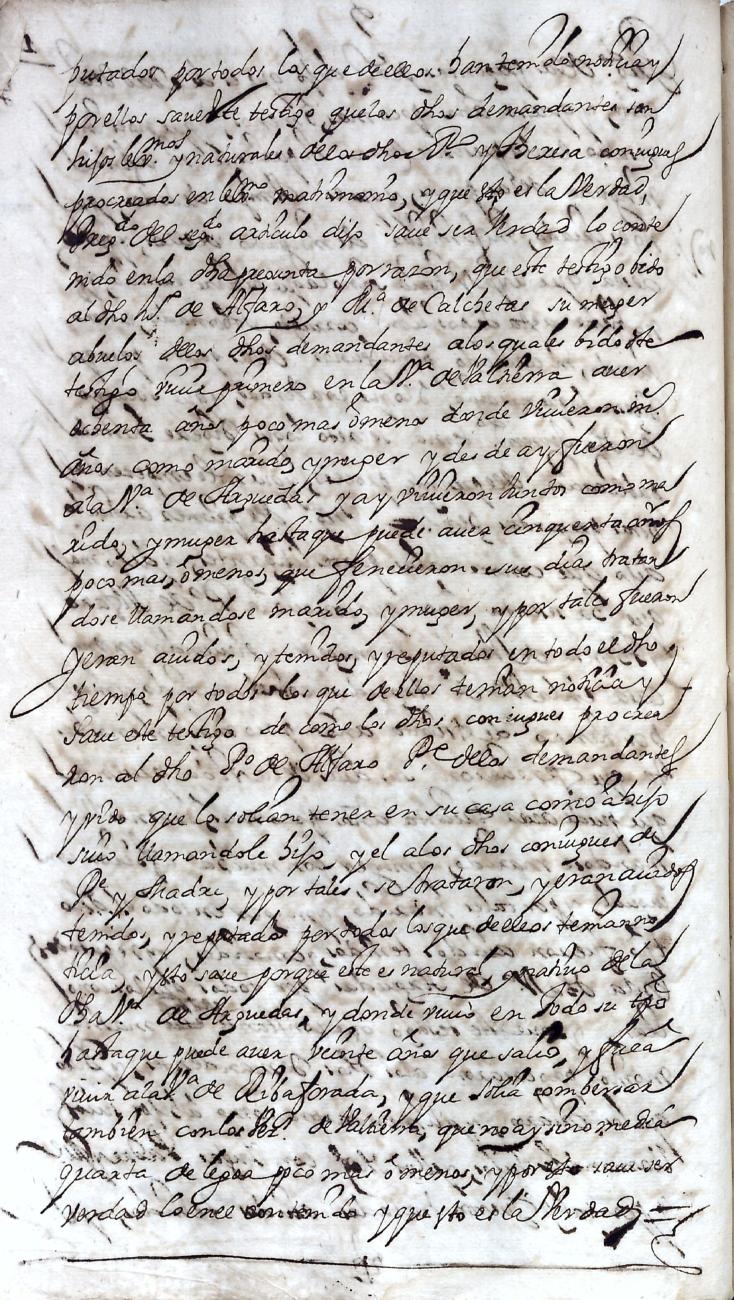 putados por todos los que de ellos han tenido noticia y
por ellos save este testigo que los dhos demandantes son
hijos lexmos y naturales dellos dhos Po y Theresa conjuges
procreados en lexmo matrimonio, y que esto es la Verdad,
Pregdo del segdo articulo dijo save ser Verdad lo conte
nido en la dha pregunta por razon, que este testigo bido
al dho de Alfaro, y Ma de Calchetas su muger
abuelos dellos dhos demandantes a los quales bido este
testigo vivir primero en la Va de Valtierra aver
ochenta años poco mas ô menos donde vivieron
años como marido, y muger y desde ay fueron
a la Va de Arguedas y ay vivieron juntos como ma
rido, y muger hasta que puede aver cinquenta años
poco mas, ô menos, que fenecieron sus dias tratan
dose llamandose marido, y muger, y por tales fueron
y eran avidos, y tenidos, y reputados en todo el dho
tiempo por todos los que de ellos tenian noticia y
save este testigo de como los dhos conjuges procrea
ron al dho Po de Alfaro Pe dellos demandantes
y vido que lo solian tener en su casa como â hijo
suio llamandole hijo, y el a los dhos conjuges de
Pe y Madre, y por tales se trataron, y eran avidos
tenidos, y reputados por todos los que de ellos tenian no
ticia, y esto save porque este es natural, y nativo de la
dha Va de Arguedas, y donde vivio en todo su tpo
hasta que puede aver veinte años que salio, y fue â
vivir a la Va de Ribaforada, y que solia combersar
tambien con los de Valtierra, que no ay sino media
quarta de legoa poco mas ô menos, y por esto save ser
verdad lo en el contenido y que esto es la Verdad